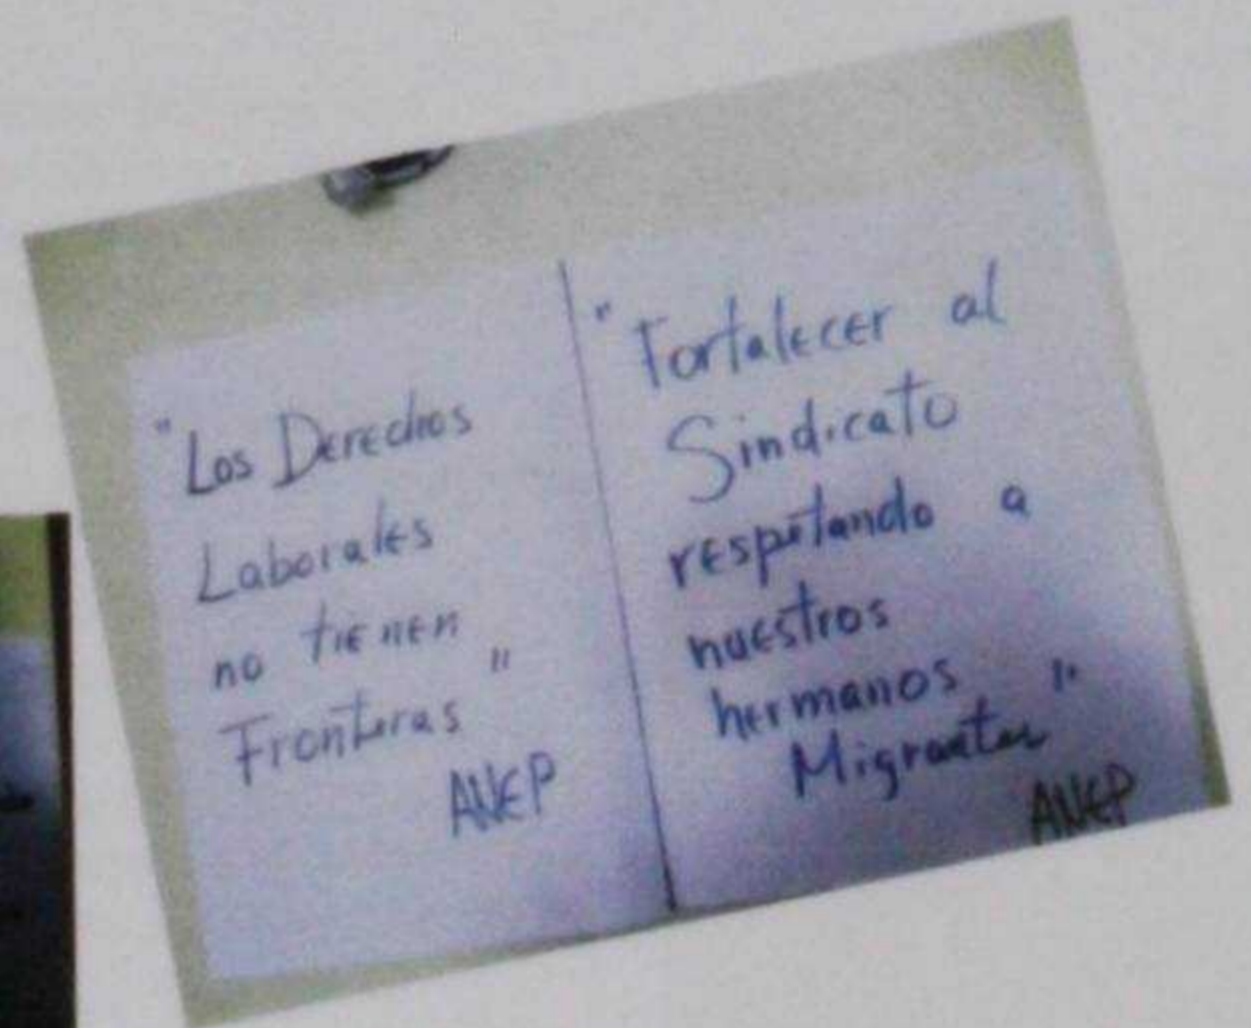 "Los Derechos
Laborales
no tienen
Fronteras"
ANEP
"Fortalecer al
Sindicato
respetando a
nuestros
hermanos
Migrantes"
ANEP